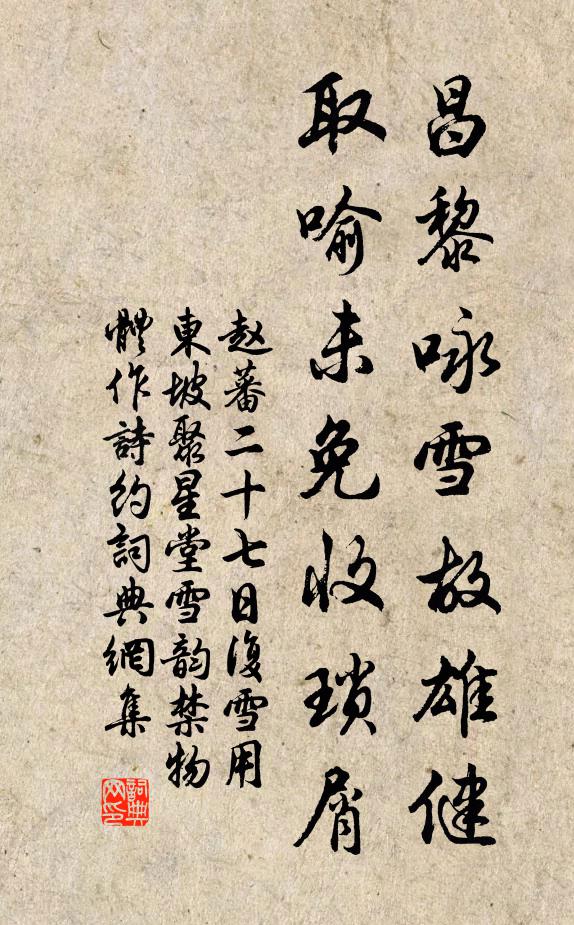 昌黎咏雪故雄健
取喻未免收琐屑
赵蕃二十七日復雪用
東坡聚星堂雪韵禁物
體作詩約詞典網集
詞典
网印